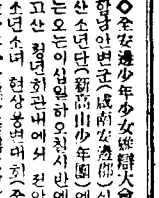 ◇全安邊少年少女雄辯大會
함남안변군(咸南安邊郡)신
고산소년단(新高山少年團)에
는오는이십일하오칠시반에
고산 청년회관내에서 전안
소년소녀 현상웅변대회(